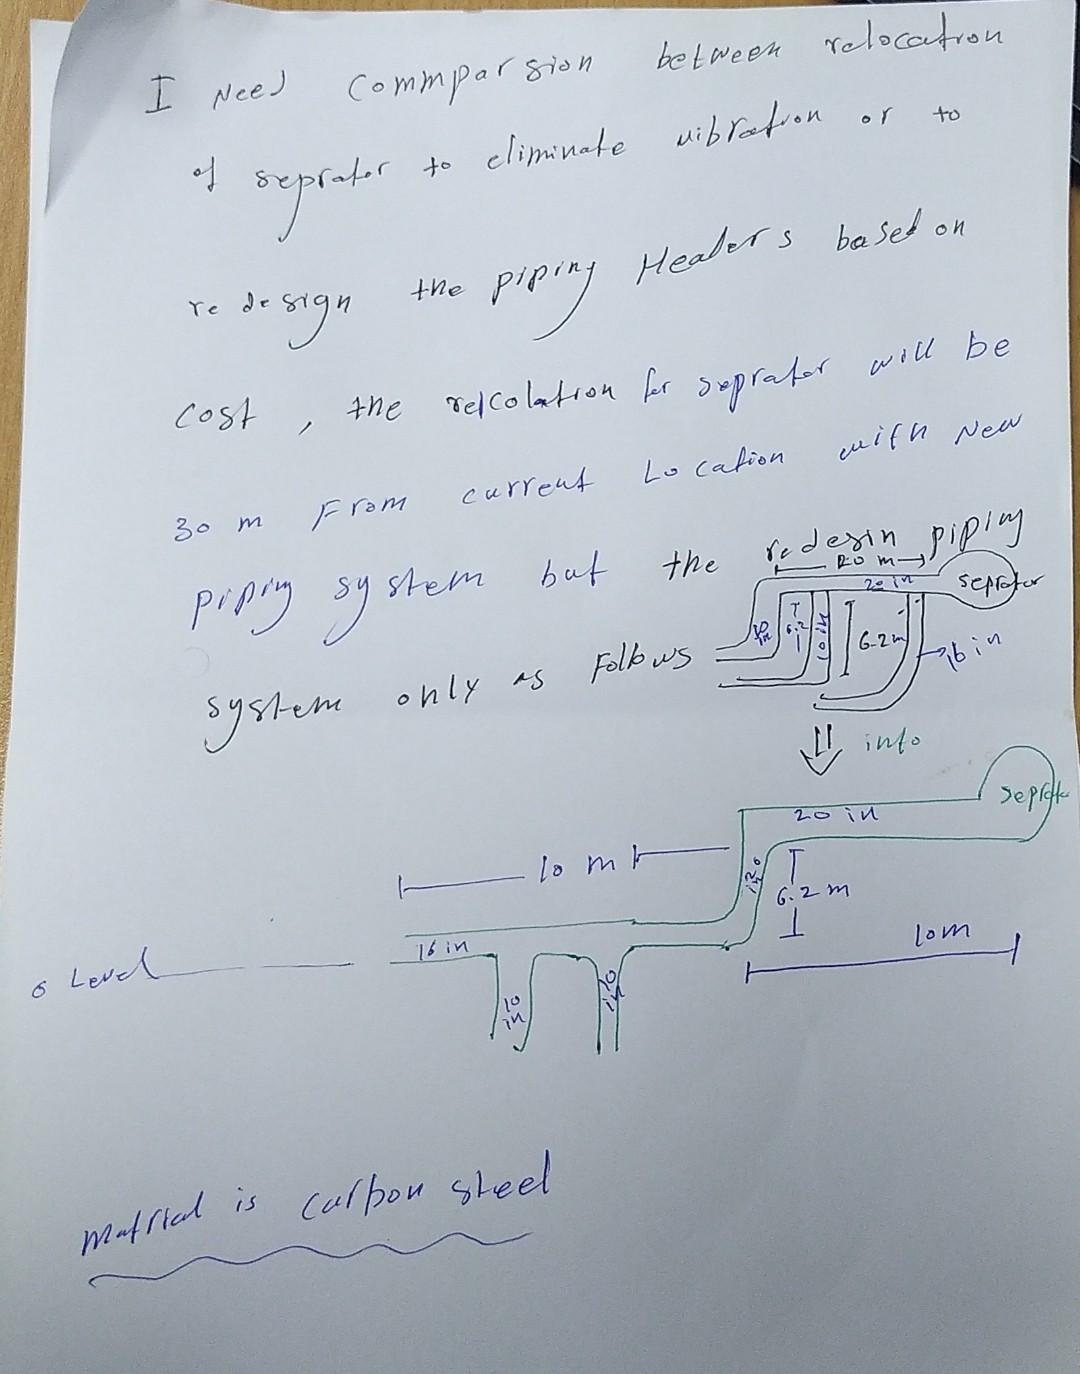 I Need Commparsion between relocation
of seprator to eliminate vibration or to
redesign the piping Headers based on
cost, the relcolation for seprator will be
30 m From current Location with New
piping system but the redesin piping
20 m
20 in
Seprator
6.2
10 in
6.2 m
16 in
system only as Follows
info
Seprator
20 in
10 m
6.2 m
16 in
10 m
0 Level
10 in
10 in
Matrial is Carbon steel